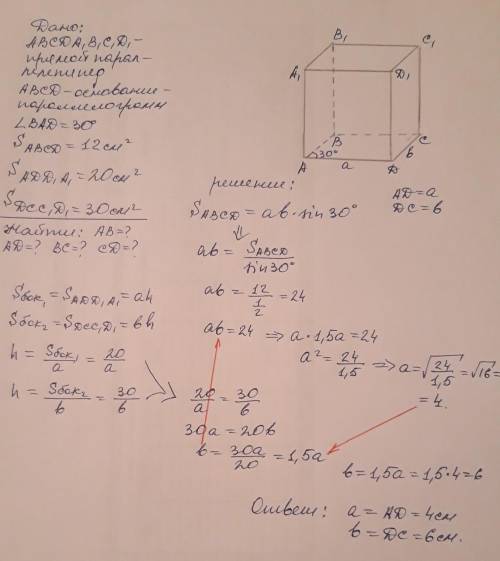 Дано:
ABCDA₁B₁C₁D₁ –
прямой парал-
лепипед
ABCD - основание -
параллелограмм
∠BAD = 30°
S_ABCD = 12 см²
S_ADD₁A₁ = 20 см²
S_DCC₁D₁ = 30 см²
Найти: AB = ?
AD = ? BC = ? CD = ?
B₁
C₁
A₁
D₁
B
C
30°
A
a
D
b
AD = a
DC = b
решение:
S_ABCD = ab · sin 30°
⇓
ab = S_ABCD / sin 30°
ab = 12 / (1/2) = 24
ab = 24 ⇒ a · 1,5a = 24
a² = 24/1,5 ⇒ a = √(24/1,5) = √16 =
= 4.
Sбок₁ = S_ADD₁A₁ = ah
Sбок₂ = S_DCC₁D₁ = bh
h = Sбок₁/a = 20/a
h = Sбок₂/b = 30/b
20/a = 30/b
30a = 20b
b = 30a/20 = 1,5a
b = 1,5a = 1,5 · 4 = 6
Ответ: a = AD = 4 см
b = DC = 6 см.